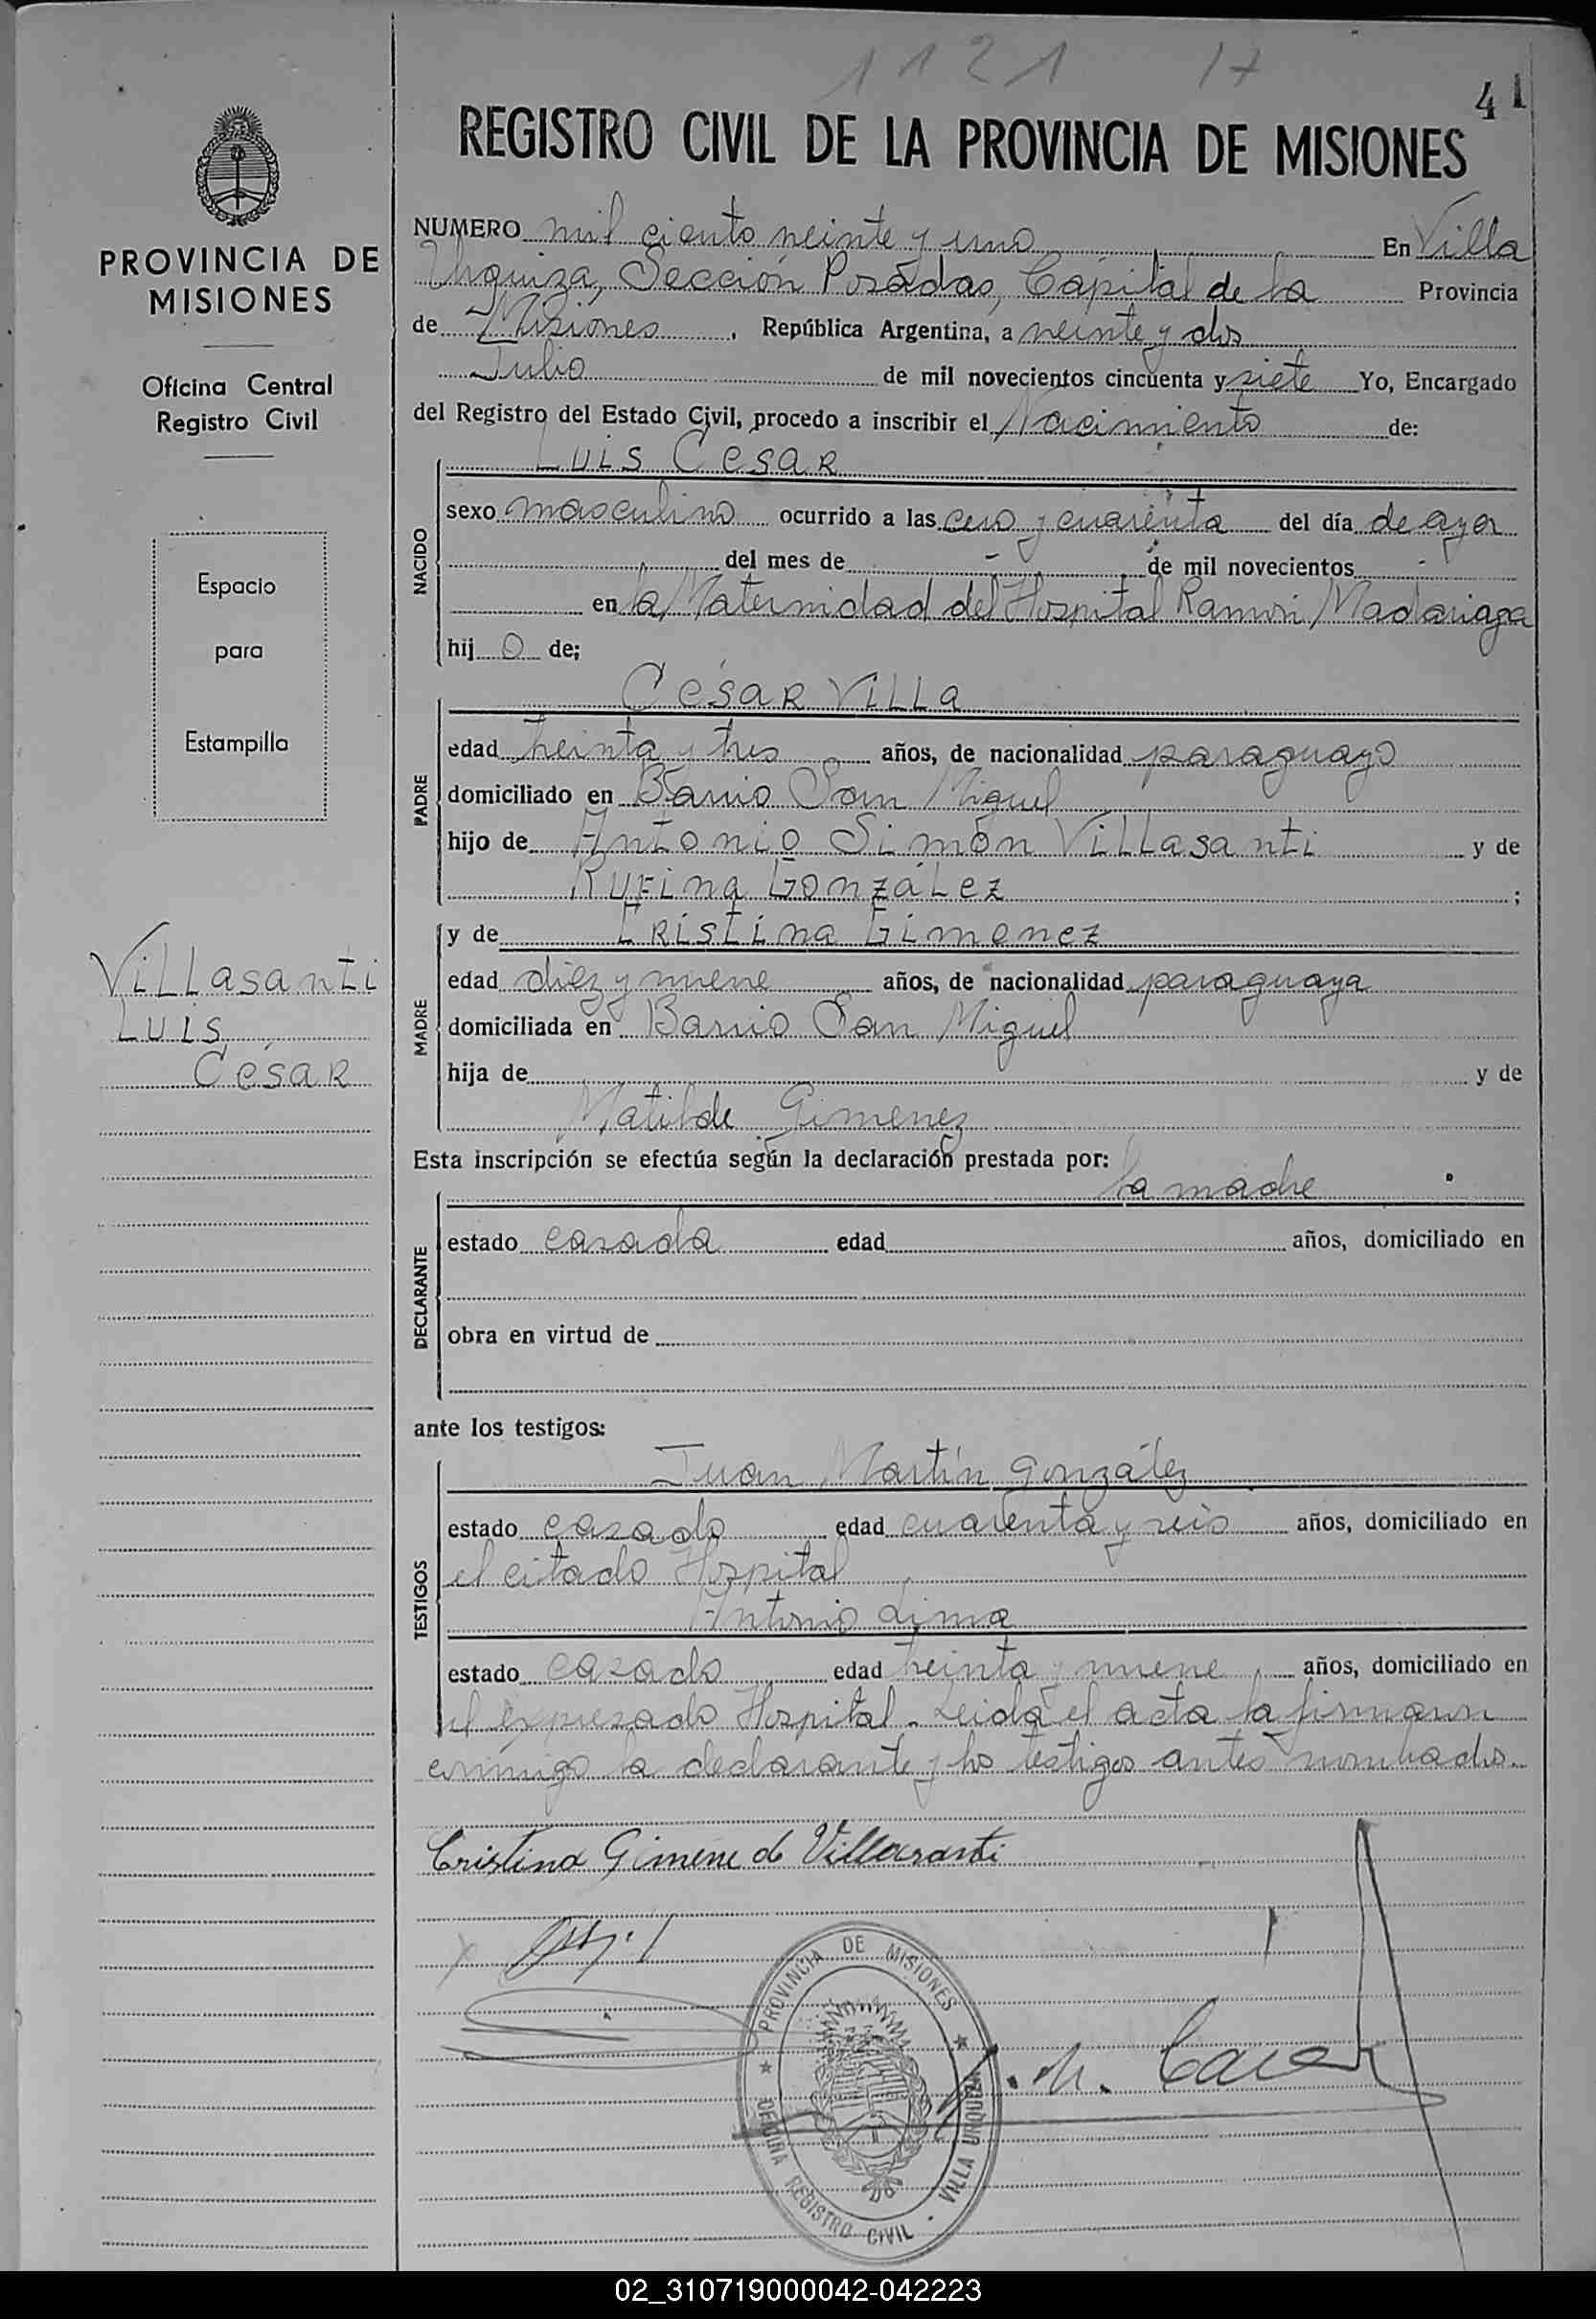 1121 17
41
REGISTRO CIVIL DE LA PROVINCIA DE MISIONES
PROVINCIA DE
MISIONES
Oficina Central
Registro Civil
Espacio
para
Estampilla
Villasanti
Luis
César
NUMERO mil ciento veinte y uno En Villa
Urquiza, Sección Posadas, Cápital de la Provincia
de Misiones, República Argentina, a veinte y dos
Julio de mil novecientos cincuenta y siete Yo, Encargado
del Registro del Estado Civil, procedo a inscribir el Nacimiento de:
NACIDO
Luis Cesar
sexo masculino ocurrido a las cero y cuarenta del día de ayer
del mes de - de mil novecientos -
en la Maternidad del Hospital Ramón Madariaga
hijo de;
PADRE
César Villa
edad treinta y tres años, de nacionalidad paraguayo
domiciliado en Barrio San Miguel
hijo de Antonio Simón Villasanti y de
Rufina González ;
MADRE
y de Cristina Gimenez
edad diez y nueve años, de nacionalidad paraguaya
domiciliada en Barrio San Miguel
hija de y de
Matilde Gimenez
Esta inscripción se efectúa según la declaración prestada por:
la madre
DECLARANTE
estado casada edad años, domiciliado en
obra en virtud de
ante los testigos:
TESTIGOS
Juan Martín González
estado casado edad cuarenta y seis años, domiciliado en
el citado Hospital
Antonio Lima
estado casado edad treinta y nueve años, domiciliado en
el expresado Hospital. Leida el acta la firmaron
conmigo la declarante y los testigos antes nombrados.
Cristina Gimene de Villasanti
PROVINCIA DE MISIONES
OFICINA REGISTRO CIVIL · VILLA URQUIZA
02_310719000042-042223